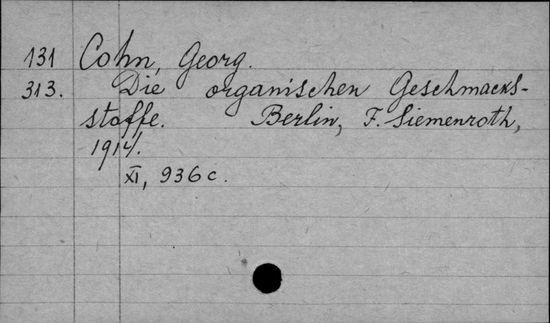 131 Cohn, Georg.
313. Die organischen Geschmacks-
stoffe. Berlin, F. Siemenroth,
1914.
XI, 936 c.